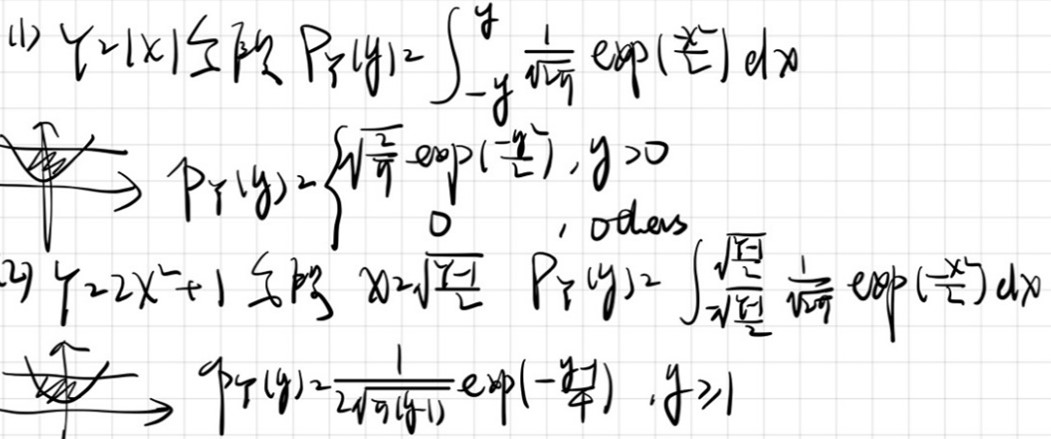 (1) Y=|X| 分段 P_Y(y)=∫_{-y}^{y} \frac{1}{\sqrt{2π}} exp(\frac{x^2}{2}) dx
p_Y(y)= { \sqrt{\frac{2}{π}} exp(\frac{-y^2}{2}), y>0
0, others
(2) Y=2X^2+1 分段 x=\sqrt{\frac{Y-1}{2}} P_Y(y)=∫_{-\sqrt{\frac{Y-1}{2}}}^{\sqrt{\frac{Y-1}{2}}} \frac{1}{\sqrt{2π}} exp(\frac{-x^2}{2}) dx
p_Y(y)=\frac{1}{2\sqrt{π(y-1)}} exp(-\frac{y-1}{4}), y≥1